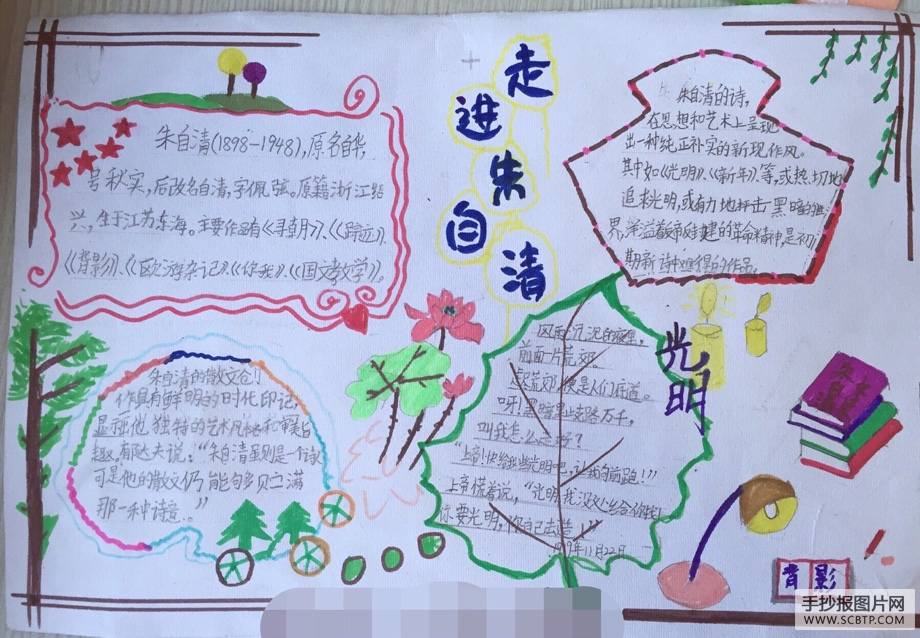 走进朱自清
朱自清(1898-1948),原名自华,
号秋实,后改名自清,字佩弦。原籍浙江绍
兴,生于江苏东海。主要作品有《寻月》、《踪迹》、
《背影》、《欧游杂记》、《你我》、《国文教学》。
朱自清的诗,
在思想和艺术上呈现
出一种纯正朴实的新现作风。
其中如《光明》、《新年》等,或热切地
追求光明,或有力地抨击黑暗的世
界,洋溢着反帝反封建的革命精神,是初
期新诗中难得的作品。
朱自清的散文创
作具有鲜明的时代印记,
显现他独特的艺术风格和审美旨
趣,郁达夫说:“朱自清虽则是一个诗
可是他的散文仍能够贝宁满
那一种诗意。”
光明
风雨沉沉的夜里,
前面一片荒郊。
走荒郊,便是人们底道。
呀!黑暗里歧路万千,
叫我怎么走好?
“上帝!快给我些光明吧,让我向前跑!”
上帝慌着说,“光明?我没处给你找!
你要光明,你自己去造!”
19年11月22日
朱自清
背影
手抄报图片网
WWW.SCBTP.COM